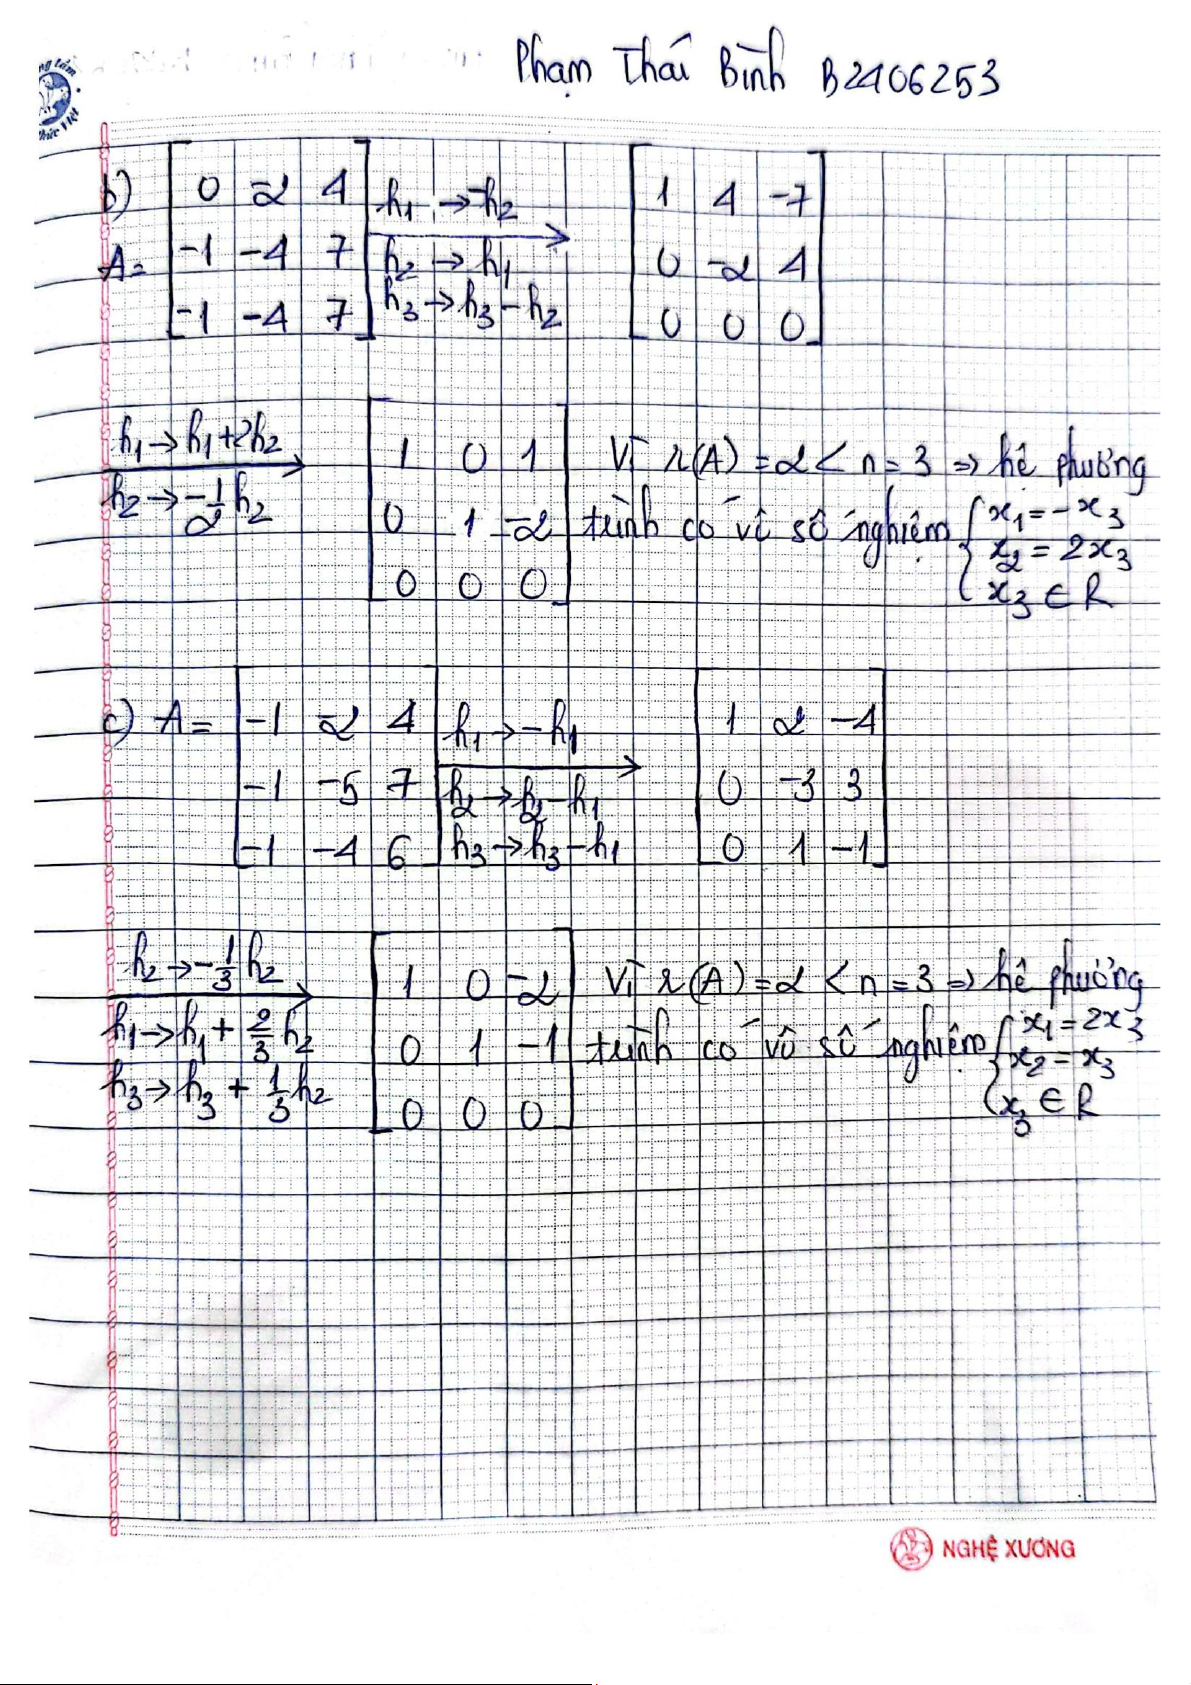 Phạm Thái Bình B2406253
b)
A=
0 -2 4
-1 -4 7
-1 -4 7
h1 → -h2
h2 → h1
h3 → h3 - h2
1 4 -7
0 -2 4
0 0 0
h1 → h1+2h2
h2 → -1/2 h2
1 0 1
0 1 -2
0 0 0
Vì r(A) = 2 < n = 3 => hệ phương
trình có vô số nghiệm
x1 = -x3
x2 = 2x3
x3 ∈ R
c) A=
-1 -2 4
-1 -5 7
-1 -4 6
h1 → -h1
h2 → h2 - h1
h3 → h3 - h1
1 2 -4
0 -3 3
0 1 -1
h2 → -1/3 h2
h1 → h1 + 2/3 h2
h3 → h3 + 1/3 h2
1 0 -2
0 1 -1
0 0 0
Vì r(A) = 2 < n = 3 => hệ phương
trình có vô số nghiệm
x1 = 2x3
x2 = x3
x3 ∈ R
NGHỆ XƯƠNG